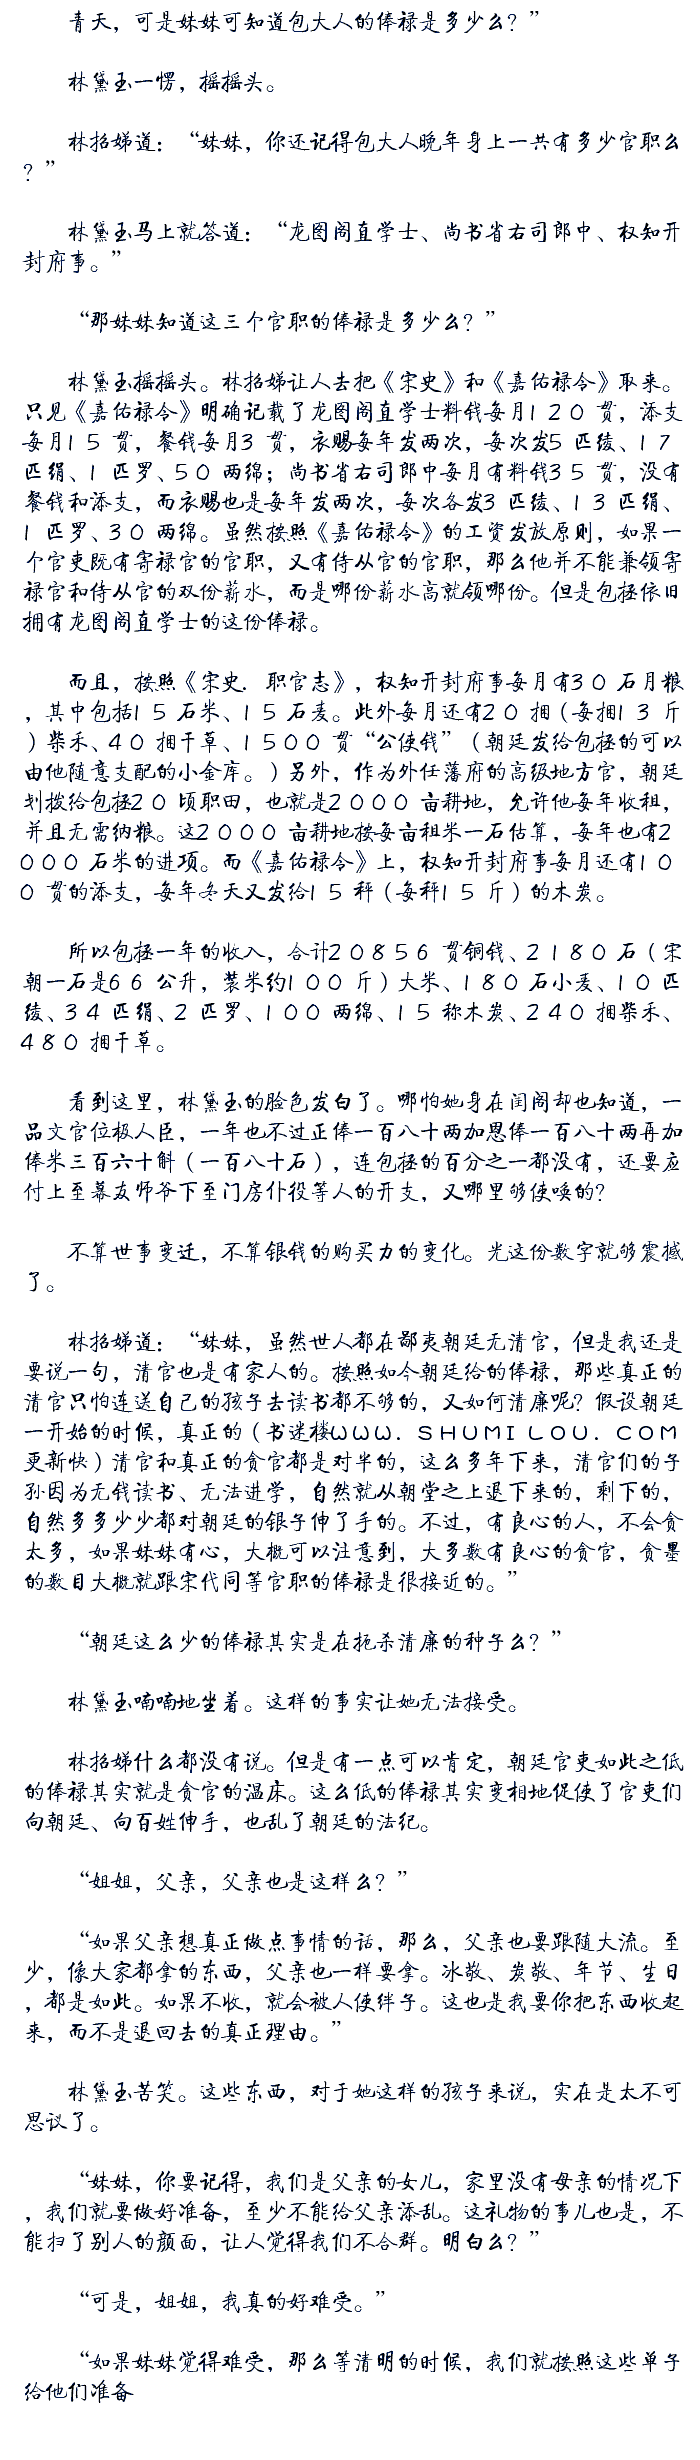 青天，可是妹妹可知道包大人的俸禄是多少么？”
林黛玉一愣，摇摇头。
林招娣道：“妹妹，你还记得包大人晚年身上一共有多少官职么
？”
林黛玉马上就答道：“龙图阁直学士、尚书省右司郎中、权知开
封府事。”
“那妹妹知道这三个官职的俸禄是多少么？”
林黛玉摇摇头。林招娣让人去把《宋史》和《嘉佑禄令》取来。
只见《嘉佑禄令》明确记载了龙图阁直学士料钱每月１２０贯，添支
每月１５贯，餐钱每月３贯，衣赐每年发两次，每次发５匹绫、１７
匹绢、１匹罗、５０两绵；尚书省右司郎中每月有料钱３５贯，没有
餐钱和添支，而衣赐也是每年发两次，每次各发３匹绫、１３匹绢、
１匹罗、３０两绵。虽然按照《嘉佑禄令》的工资发放原则，如果一
个官吏既有寄禄官的官职，又有侍从官的官职，那么他并不能兼领寄
禄官和侍从官的双份薪水，而是哪份薪水高就领哪份。但是包拯依旧
拥有龙图阁直学士的这份俸禄。
而且，按照《宋史．职官志》，权知开封府事每月有３０石月粮
，其中包括１５石米、１５石麦。此外每月还有２０捆（每捆１３斤
）柴禾、４０捆干草、１５００贯“公使钱”（朝廷发给包拯的可以
由他随意支配的小金库。）另外，作为外任藩府的高级地方官，朝廷
划拨给包拯２０顷职田，也就是２０００亩耕地，允许他每年收租，
并且无需纳粮。这２０００亩耕地按每亩租米一石估算，每年也有２
０００石米的进项。而《嘉佑禄令》上，权知开封府事每月还有１０
０贯的添支，每年冬天又发给１５秤（每秤１５斤）的木炭。
所以包拯一年的收入，合计２０８５６贯铜钱、２１８０石（宋
朝一石是６６公升，装米约１００斤）大米、１８０石小麦、１０匹
绫、３４匹绢、２匹罗、１００两绵、１５称木炭、２４０捆柴禾、
４８０捆干草。
看到这里，林黛玉的脸色发白了。哪怕她身在闺阁却也知道，一
品文官位极人臣，一年也不过正俸一百八十两加恩俸一百八十两再加
俸米三百六十斛（一百八十石），连包拯的百分之一都没有，还要应
付上至幕友师爷下至门房仆役等人的开支，又哪里够使唤的？
不算世事变迁，不算银钱的购买力的变化。光这份数字就够震撼
了。
林招娣道：“妹妹，虽然世人都在鄙夷朝廷无清官，但是我还是
要说一句，清官也是有家人的。按照如今朝廷给的俸禄，那些真正的
清官只怕连送自己的孩子去读书都不够的，又如何清廉呢？假设朝廷
一开始的时候，真正的（书迷楼ＷＷＷ．ＳＨＵＭＩＬＯＵ．ＣＯＭ
更新快）清官和真正的贪官都是对半的，这么多年下来，清官们的子
孙因为无钱读书、无法进学，自然就从朝堂之上退下来的，剩下的，
自然多多少少都对朝廷的银子伸了手的。不过，有良心的人，不会贪
太多，如果妹妹有心，大概可以注意到，大多数有良心的贪官，贪墨
的数目大概就跟宋代同等官职的俸禄是很接近的。”
“朝廷这么少的俸禄其实是在扼杀清廉的种子么？”
林黛玉喃喃地坐着。这样的事实让她无法接受。
林招娣什么都没有说。但是有一点可以肯定，朝廷官吏如此之低
的俸禄其实就是贪官的温床。这么低的俸禄其实变相地促使了官吏们
向朝廷、向百姓伸手，也乱了朝廷的法纪。
“姐姐，父亲，父亲也是这样么？”
“如果父亲想真正做点事情的话，那么，父亲也要跟随大流。至
少，像大家都拿的东西，父亲也一样要拿。冰敬、炭敬、年节、生日
，都是如此。如果不收，就会被人使绊子。这也是我要你把东西收起
来，而不是退回去的真正理由。”
林黛玉苦笑。这些东西，对于她这样的孩子来说，实在是太不可
思议了。
“妹妹，你要记得，我们是父亲的女儿，家里没有母亲的情况下
，我们就要做好准备，至少不能给父亲添乱。这礼物的事儿也是，不
能扫了别人的颜面，让人觉得我们不合群。明白么？”
“可是，姐姐，我真的好难受。”
“如果妹妹觉得难受，那么等清明的时候，我们就按照这些单子
给他们准备